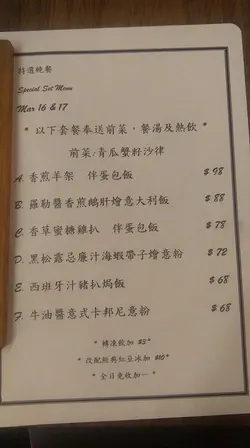 特選晚餐
Special Set Menu
Mar 16 & 17
* 以下套餐奉送前菜，餐湯及熱飲 *
前菜:青瓜蟹籽沙律
A. 香煎羊架 伴蛋包飯 $98
B. 羅勒醬香煎鵝肝燴意大利飯 $88
C. 香草蜜糖雞扒 伴蛋包飯 $78
D. 黑松露忌廉汁海蝦帶子燴意粉 $72
E. 西班牙汁豬扒焗飯 $68
F. 牛油醬意式卡邦尼意粉 $68
* 轉凍飲加 $3*
* 改配經典紅豆冰加 $10*
* 全日免收加一 *